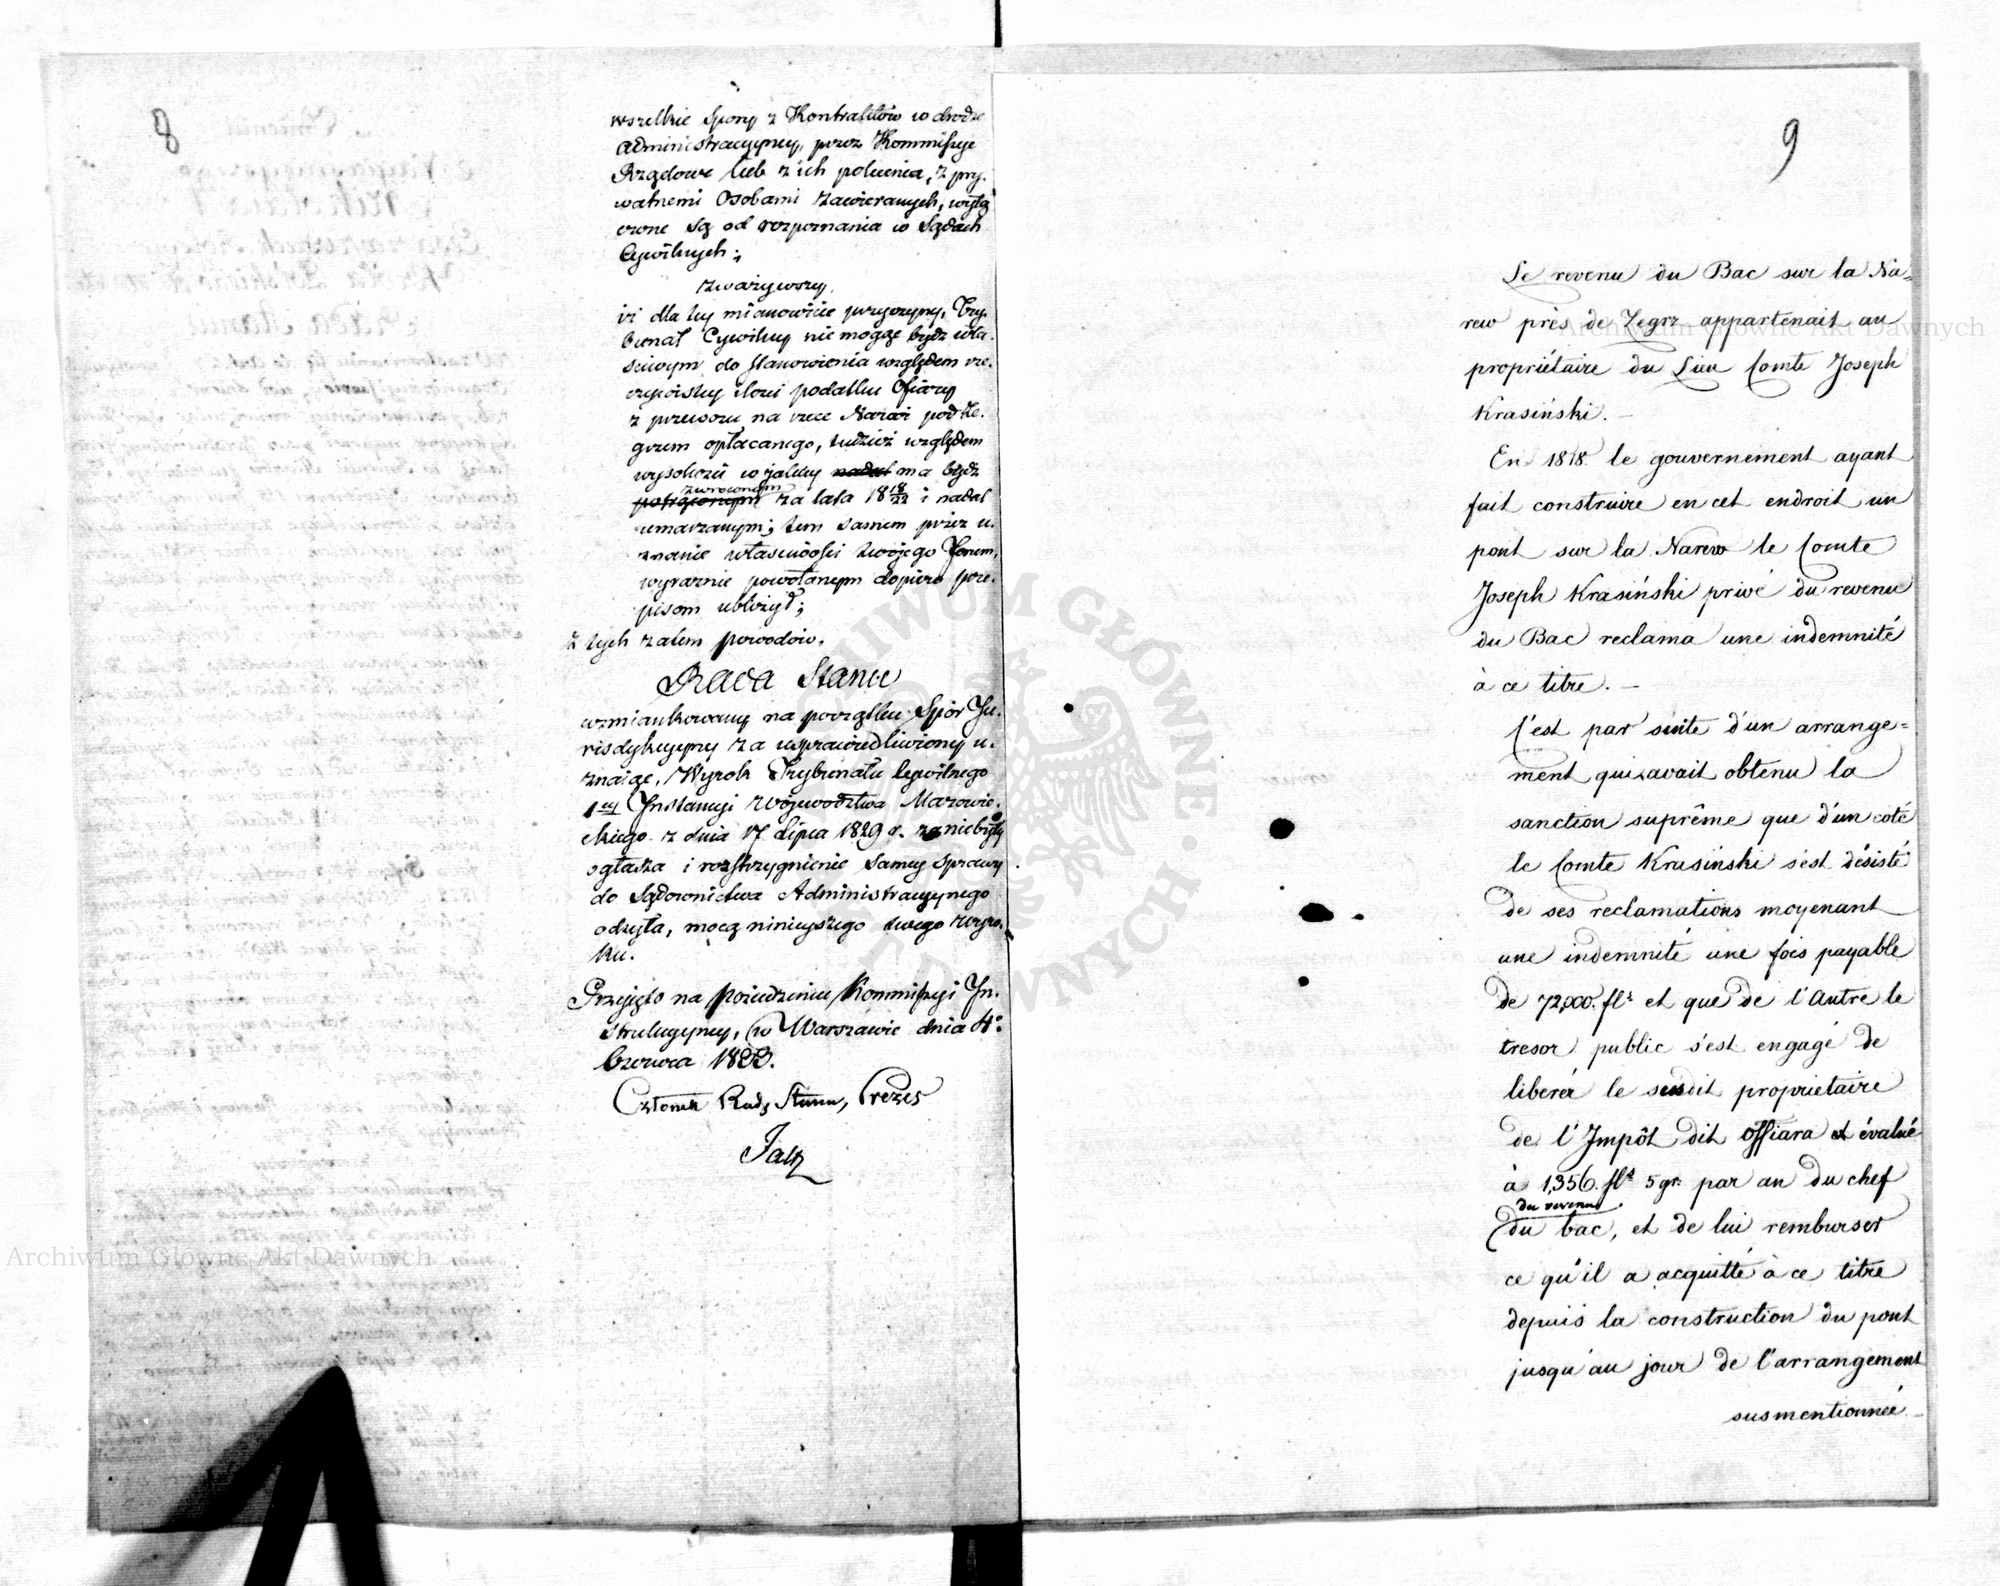 8
wszelkie Spory z Kontraktów w drodze
Administracyjney, przez Kommissye
Rządowe lub z ich polecenia, z pry-
watnemi Osobami zawieranych, wyłą
czone są od rozpoznania w Sądach
Cywilnych;
zważywszy,
iż dla tey mianowicie przyczyny, Try-
bunał Cywilny nie mogąc bydź wła-
ściwym do stanowienia względem rze-
czywistey ilości podatku Ofiary
z przewozu na rzece Narwi pod Ze-
grzem opłacanego, tudzież względem
wysokości w jakiey nadal ma bydź
zwróconym
potrąconym za lata 18 18/22 i nadal
umarzanym; tem samem przez u-
znanie właściwości swojego Forum,
wyraźnie powołanym dopiero prze-
pisom ubliżył;
z tych zatem powodów.
Rada Stanu
wzmiankowany na początku Spór Ju-
risdykcyjny za usprawiedliwiony u-
znaiąc, Wyrok Trybunału Cywilnego
1ey Instancyi Województwa Mazowie-
ckiego z dnia 17 Lipca 1829 r. za niebyły
ogłasza i rozstrzygnienie samey sprawy
do Sądownictwa Administracyjnego
odsyła, mocą ninieyszego swego wyro-
ku.
Przyjęto na posiedzeniu Kommissyi In-
strukcyjney, w Warszawie dnia 4o
Czerwca 1833.
Członek Rady Stanu, Prezes
9
Le revenu du Bac sur la Na=
rew près de Zegrz appartenait au
propriétaire du Lieu Comte Joseph
Krasiński. —
En 1818 le gouvernement ayant
fait construire en cet endroit un
pont sur la Narew le Comte
Joseph Krasiński privé du revenu
du Bac reclama une indemnité
à ce titre. —
C'est par suite d'un arrange=
ment qui avait obtenu la
sanction suprême que d'un coté
le Comte Krasiński s'est désisté
de ses reclamations moyenant
une indemnité une fois payable
de 72,000. fls et que de l'Autre le
tresor public s'est engagé de
liberér le susdit propriétaire
de l'Impôt dit Offiara et évalué
à 1,356. fls 5 gr. par an du chef
du revenu
du bac, et de lui rembourser
ce qu'il a acquitté à ce titre
depuis la construction du pont
jusqu'au jour de l'arrangement
susmentionnée
Archiwum Główne Akt Dawnych
Archiwum Główne Akt Dawnych
ARCHIWUM GŁÓWNE AKT DAWNYCH